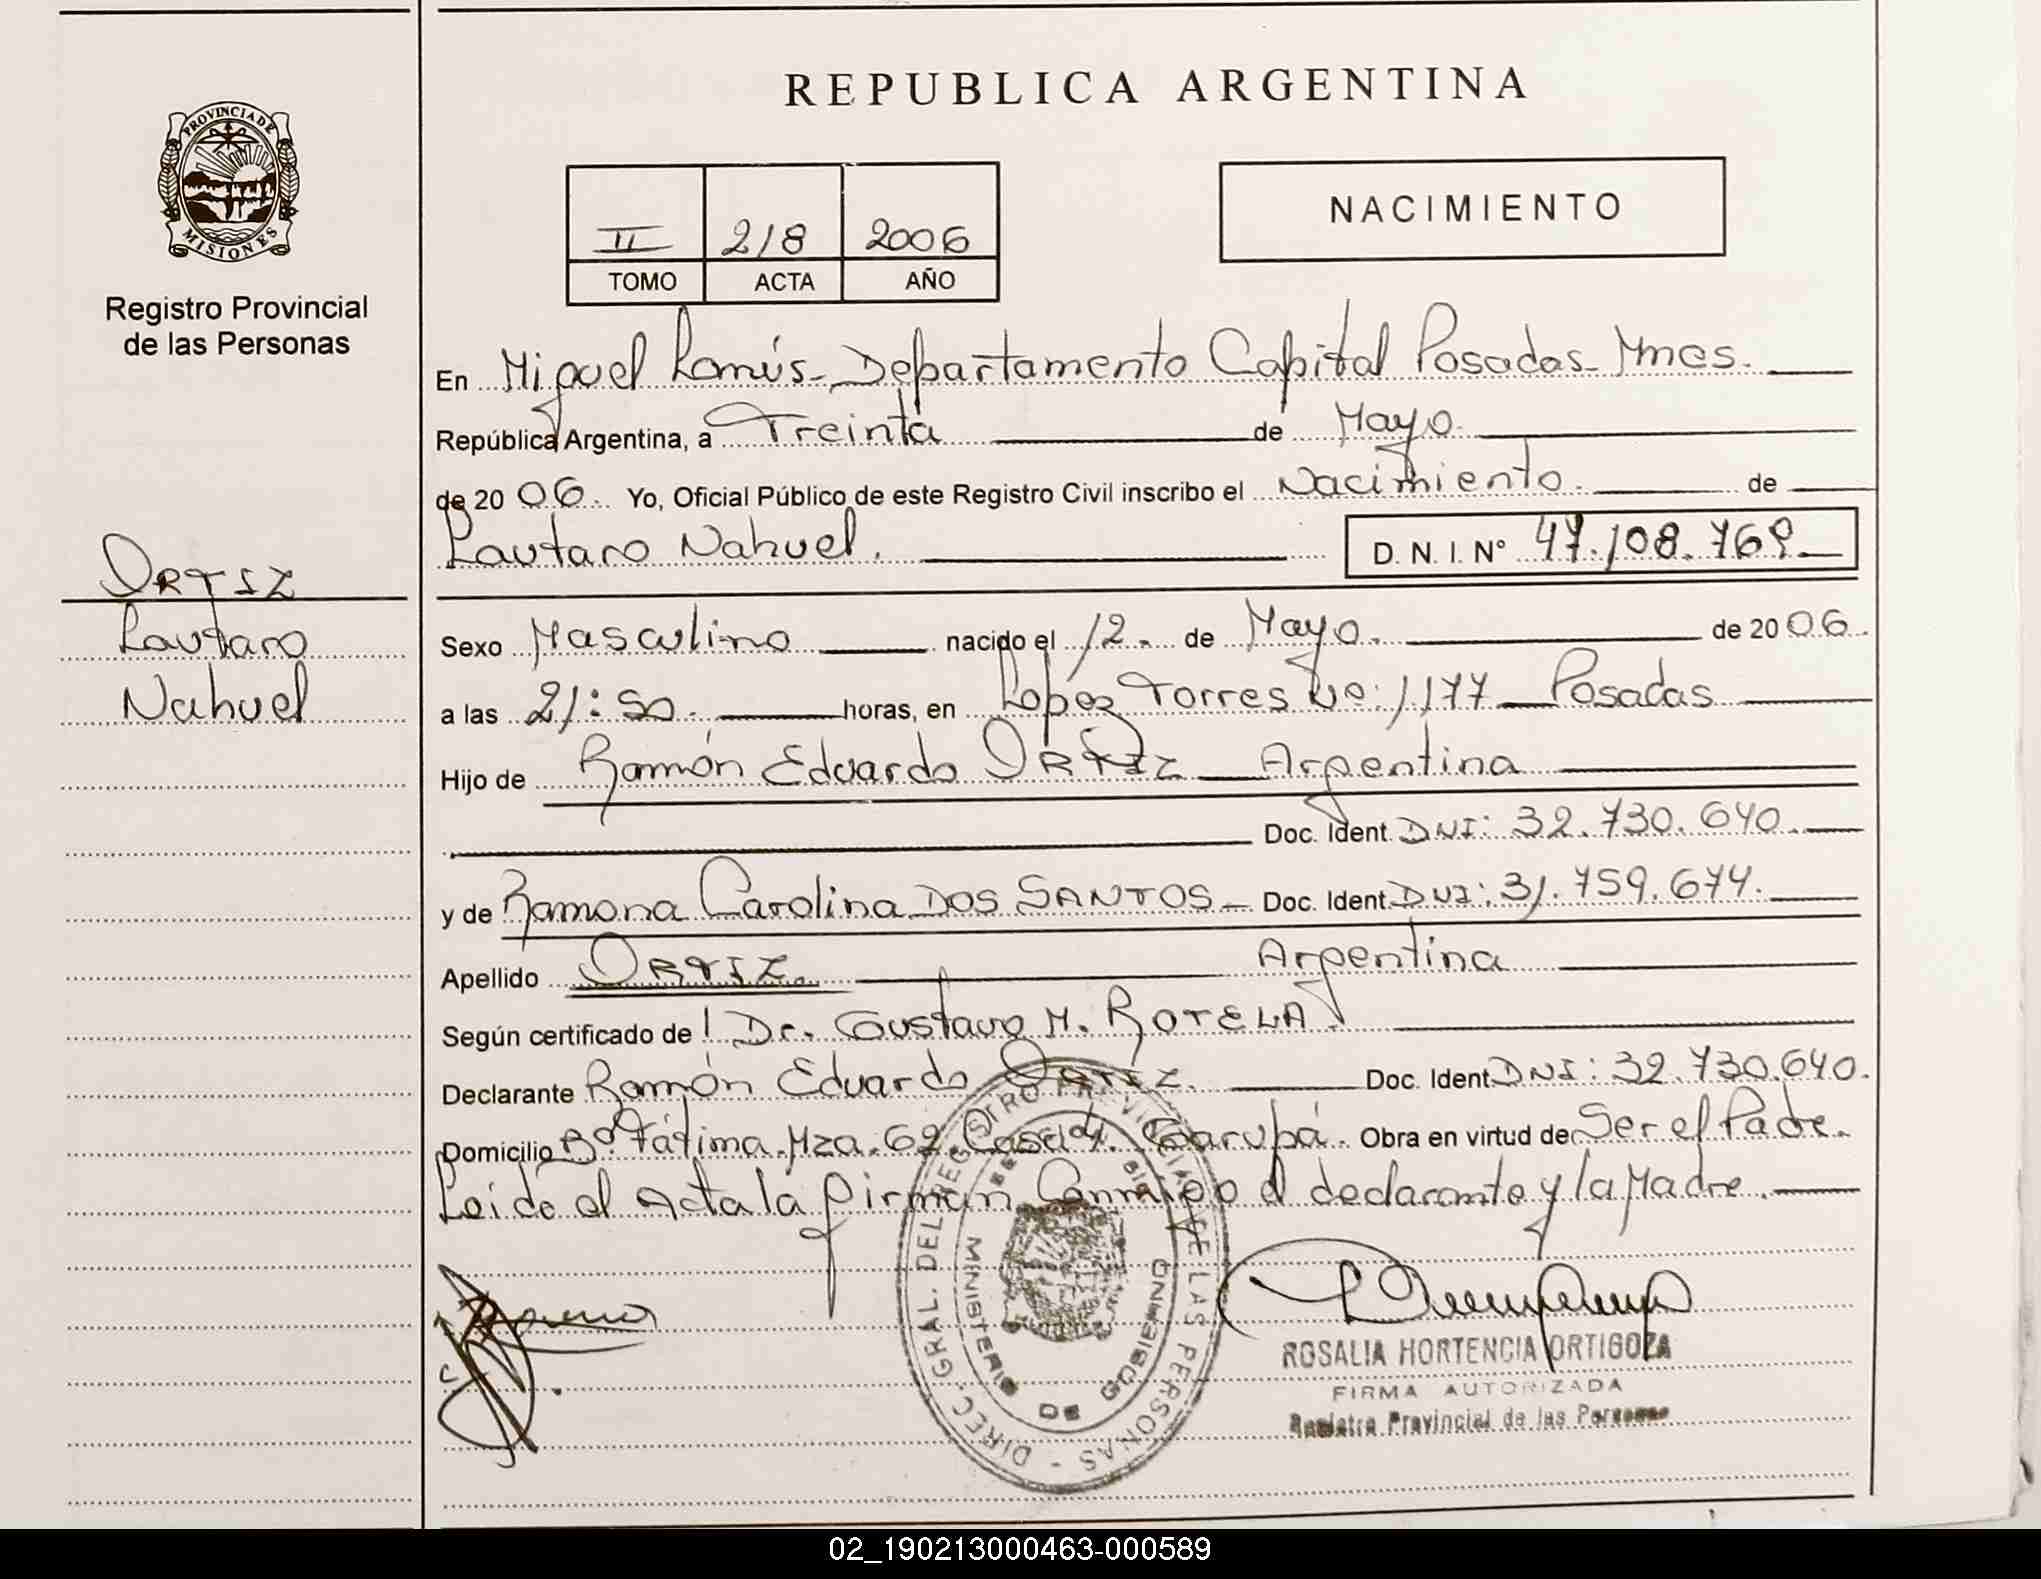 REPUBLICA ARGENTINA
PROVINCIA DE
MISIONES
Registro Provincial
de las Personas
II 218 2006
TOMO ACTA AÑO
NACIMIENTO
En Miguel Lanús - Departamento Capital Posadas - Mnes.
República Argentina, a Treinta de Mayo.
de 20 06. Yo, Oficial Público de este Registro Civil inscribo el Nacimiento. de
Lautaro Nahuel.
D. N. I. Nº 47.108.769
ORTIZ
Lautaro
Nahuel
Sexo Masculino nacido el 12. de Mayo. de 20 06.
a las 21:50. horas, en López Torres Nº: 1177 Posadas
Hijo de Ramón Eduardo ORTIZ Argentina
Doc. Ident. DNI: 32.730.640.
y de Ramona Carolina DOS SANTOS - Doc. Ident. DNI: 31.759.674.
Apellido ORTIZ. Argentina
Según certificado de ! Dr. Gustavo M. ROTELA.
Declarante Ramón Eduardo ORTIZ. Doc. Ident DNI: 32.730.640.
Domicilio Bº Fátima. Mza. 62. Casa Garupá. Obra en virtud de Ser el Padre.
Leído el Acta la firman Conmigo el declarante y la Madre.
DIREC. GRAL. DEL REGISTRO PROVINCIAL DE LAS PERSONAS -
MINISTERIO DE GOBIERNO
ROSALIA HORTENCIA ORTIGOZA
FIRMA AUTORIZADA
Registro Provincial de las Personas
02_190213000463-000589